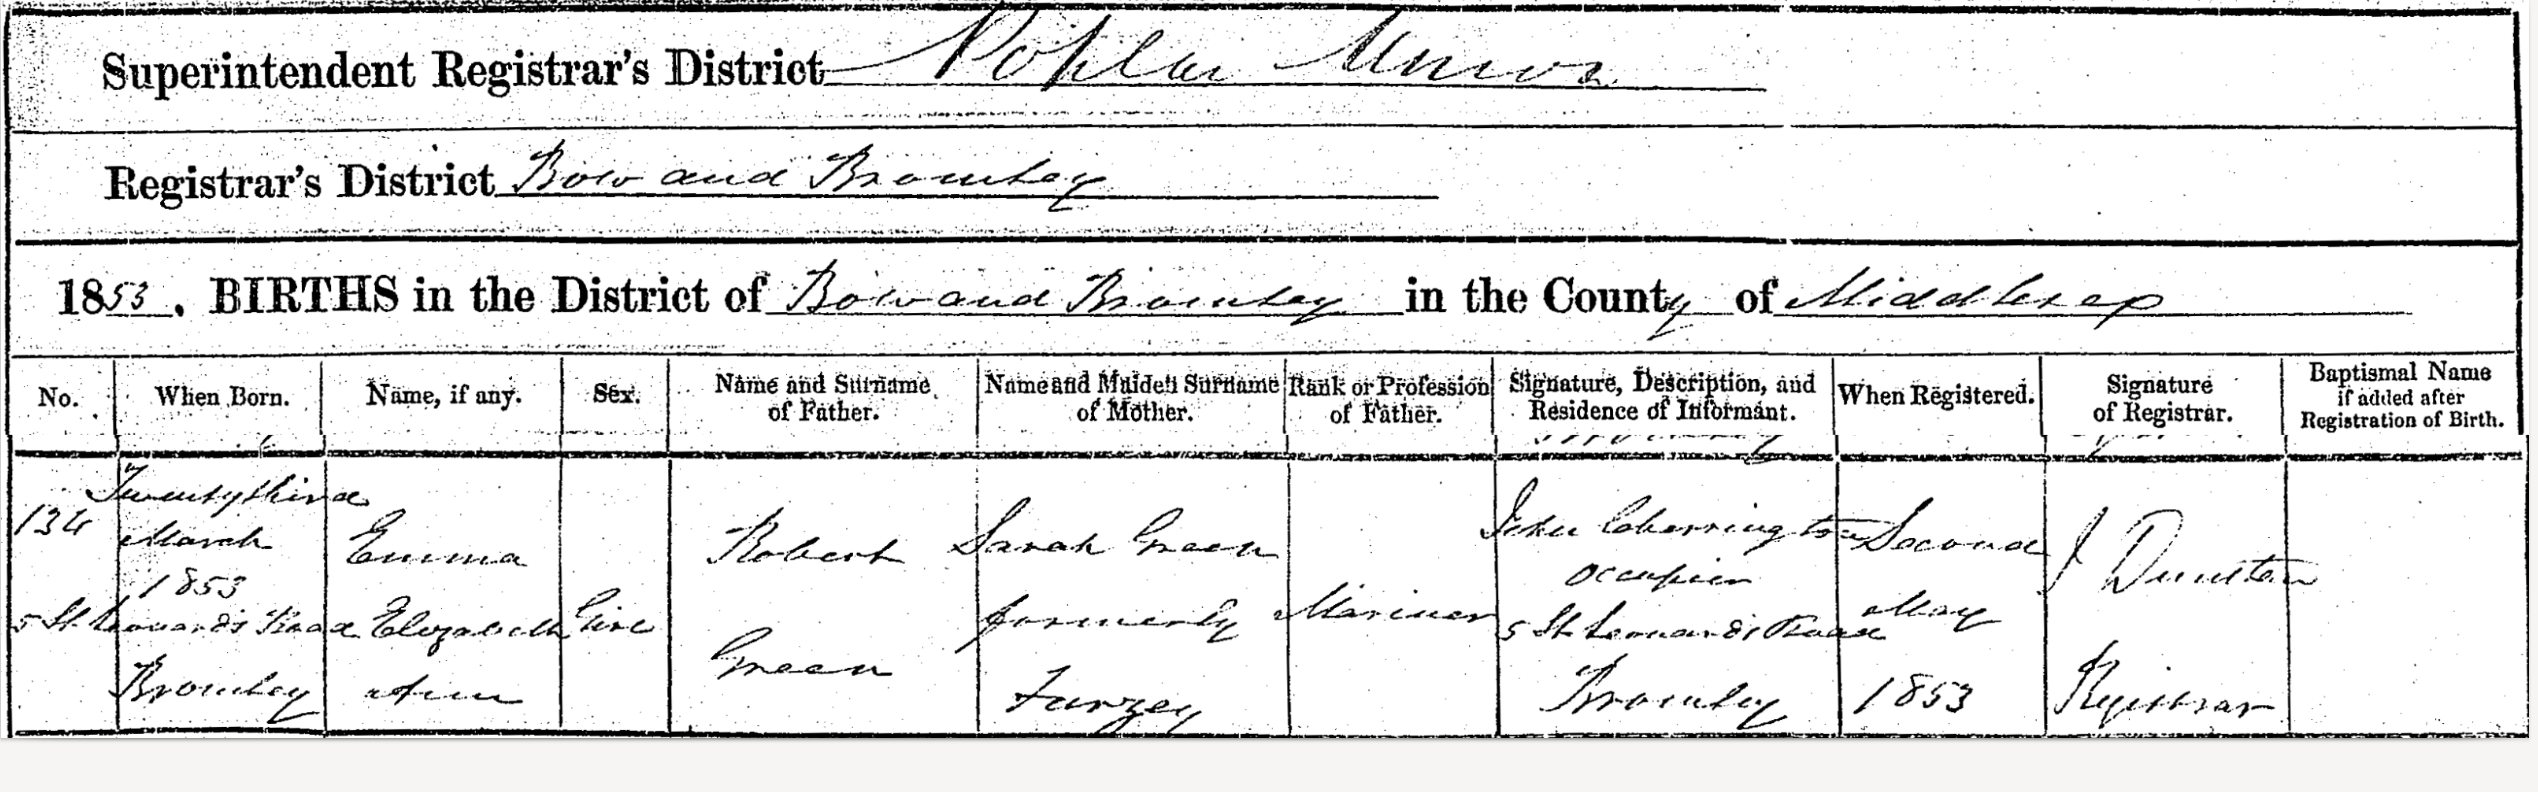 Superintendent Registrar's District Poplar Union
Registrar's District Bow and Bromley
1853. BIRTHS in the District of Bow and Bromley in the County of Middlesex
No.
When Born.
Name, if any.
Sex.
Name and Surname
of Father.
Name and Maiden Surname
of Mother.
Rank or Profession
of Father.
Signature, Description, and
Residence of Informant.
When Registered.
Signature
of Registrar.
Baptismal Name
if added after
Registration of Birth.
134
Twenty third
March
1853
5 St Leonards Road
Bromley
Emma
Elizabeth
Ann
Girl
Robert
Green
Sarah Green
formerly
Furzey
Mariner
John Cherrington
occupier
5 St Leonards Road
Bromley
Second
May
1853
J Dunstan
Registrar